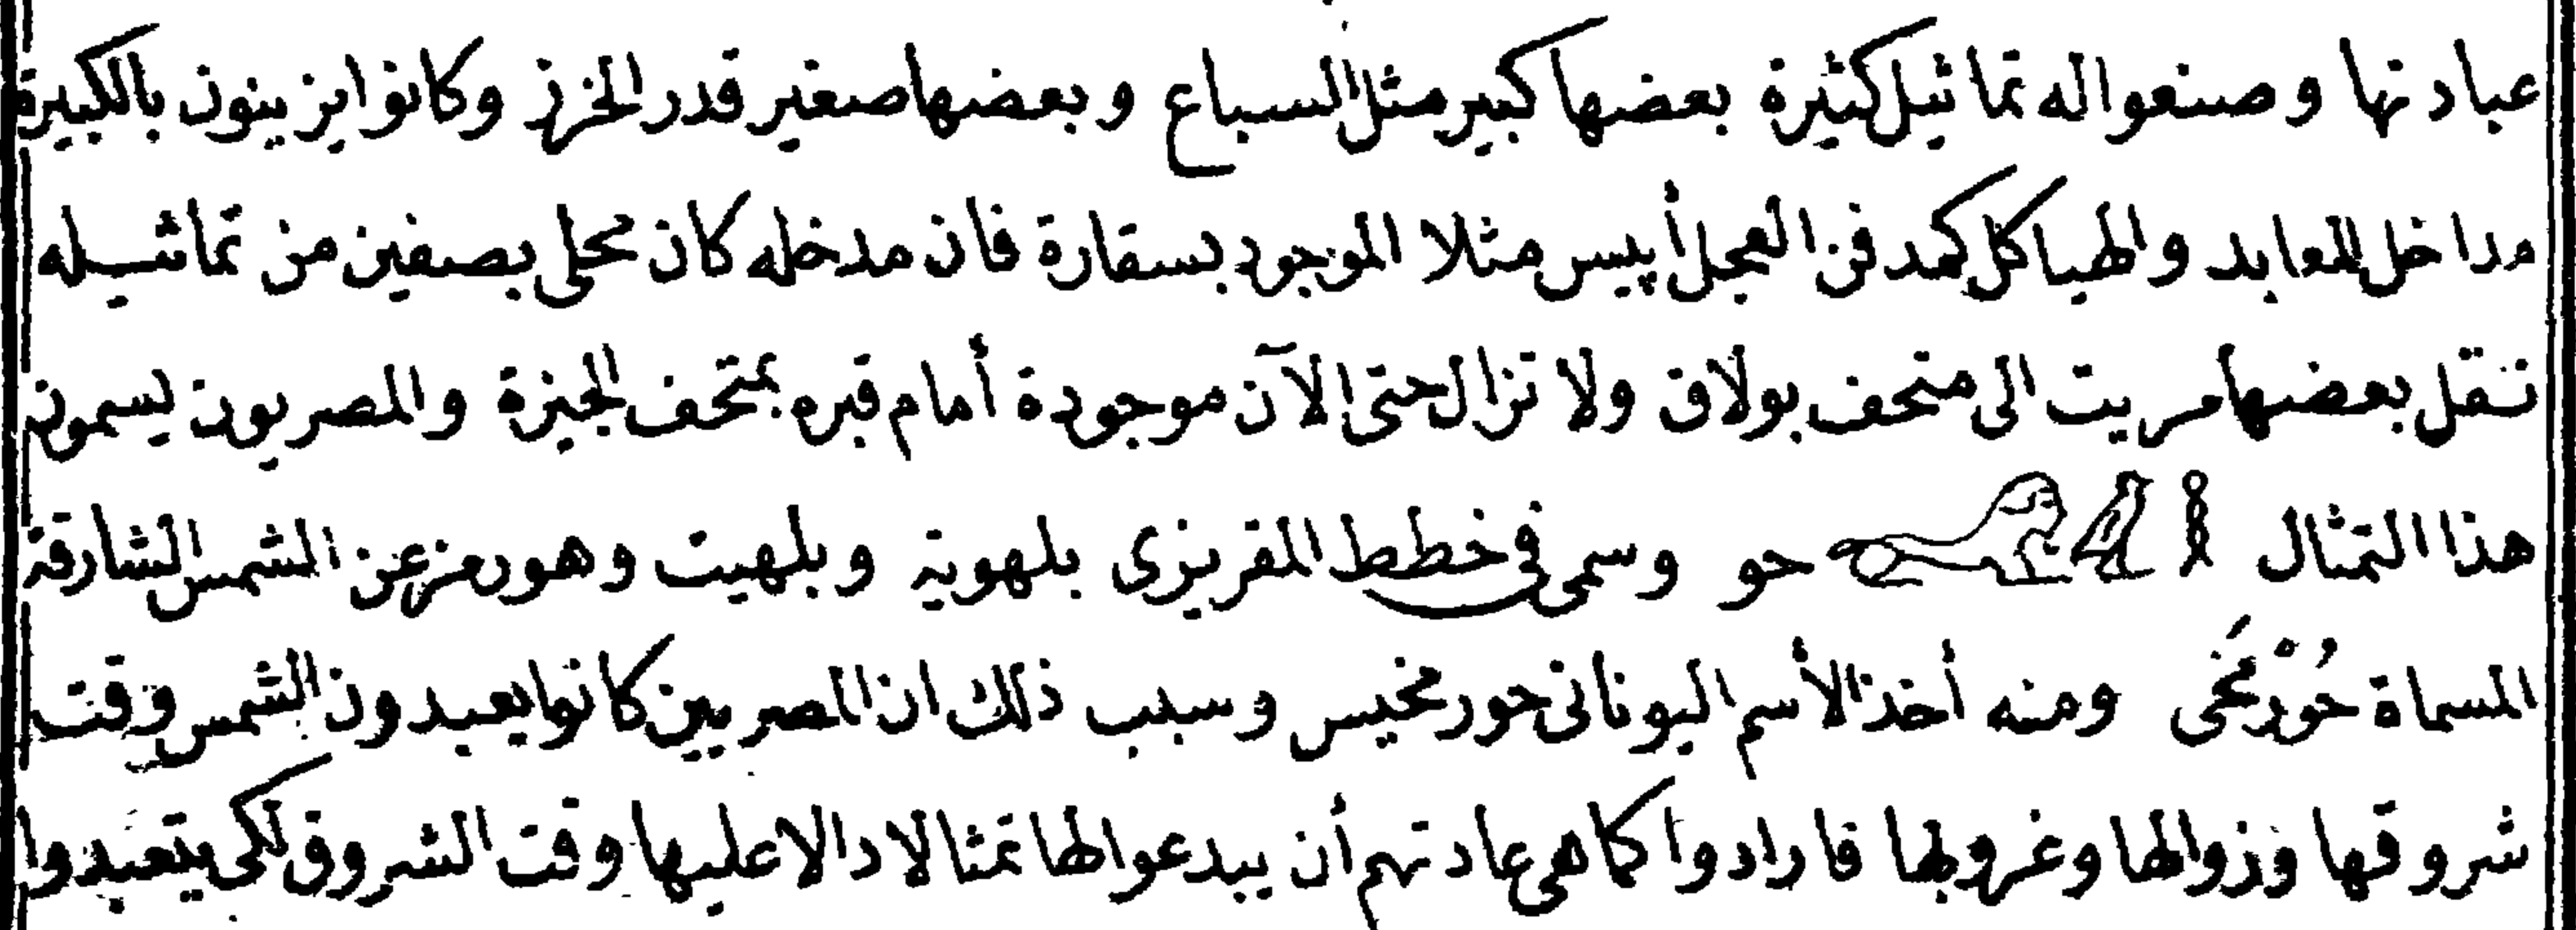 عبادتها وصنعوا له تماثيل كثيرة بعضها كبير مثل السباع وبعضها صغير قدر الخرز وكانوا يزينون بالكبيرة
مداخل المعابد والهياكل كمدفن العجل أپيس مثلا الموجود بسقارة فان مدخله كان محلى بصفين من تماثيله
نقل بعضها مريت الى متحف بولاق ولا تزال حتى الآن موجودة أمام قبره بمتحف الجيزة والمصريون يسمونه
هذا التمثال حو وسمى فى خطط المقريزى بلهوية وبلهيت وهو رمز عن الشمس الشارقة
المسماة حُورْمَخى ومنه أخذ الأسم اليونانى حورمخيس وسبب ذلك ان المصريين كانوا يعبدون الشمس وقت
شروقها وزوالها وغروبها فارادوا كما هى عادتهم أن يبدعوا لها تمثالا دالا عليها وقت الشروق لكى يتعبدوا